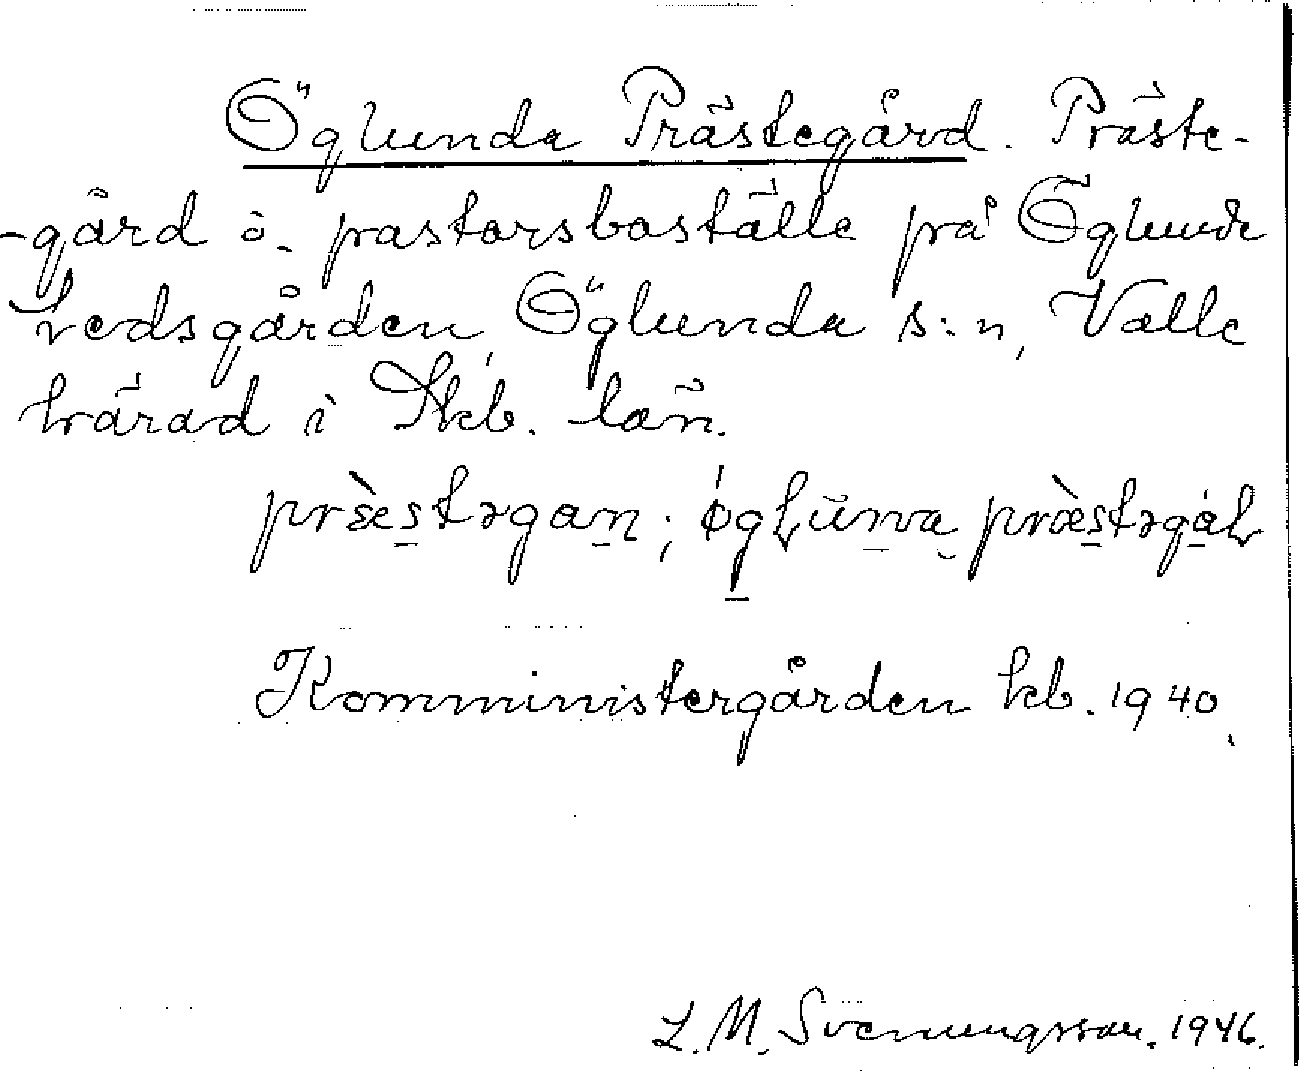 Öglunda Prästegård. Präste-
-gård o. pastorsboställe på Öglunda
Ledsgården, Öglunda s:n, Valle
härad i Skb. län.
præ̀stəgaɳ; øgɫuɳa præ̀stəgaɫ
Komministergården kb. 1940.
L. M. Svenungsson. 1946.